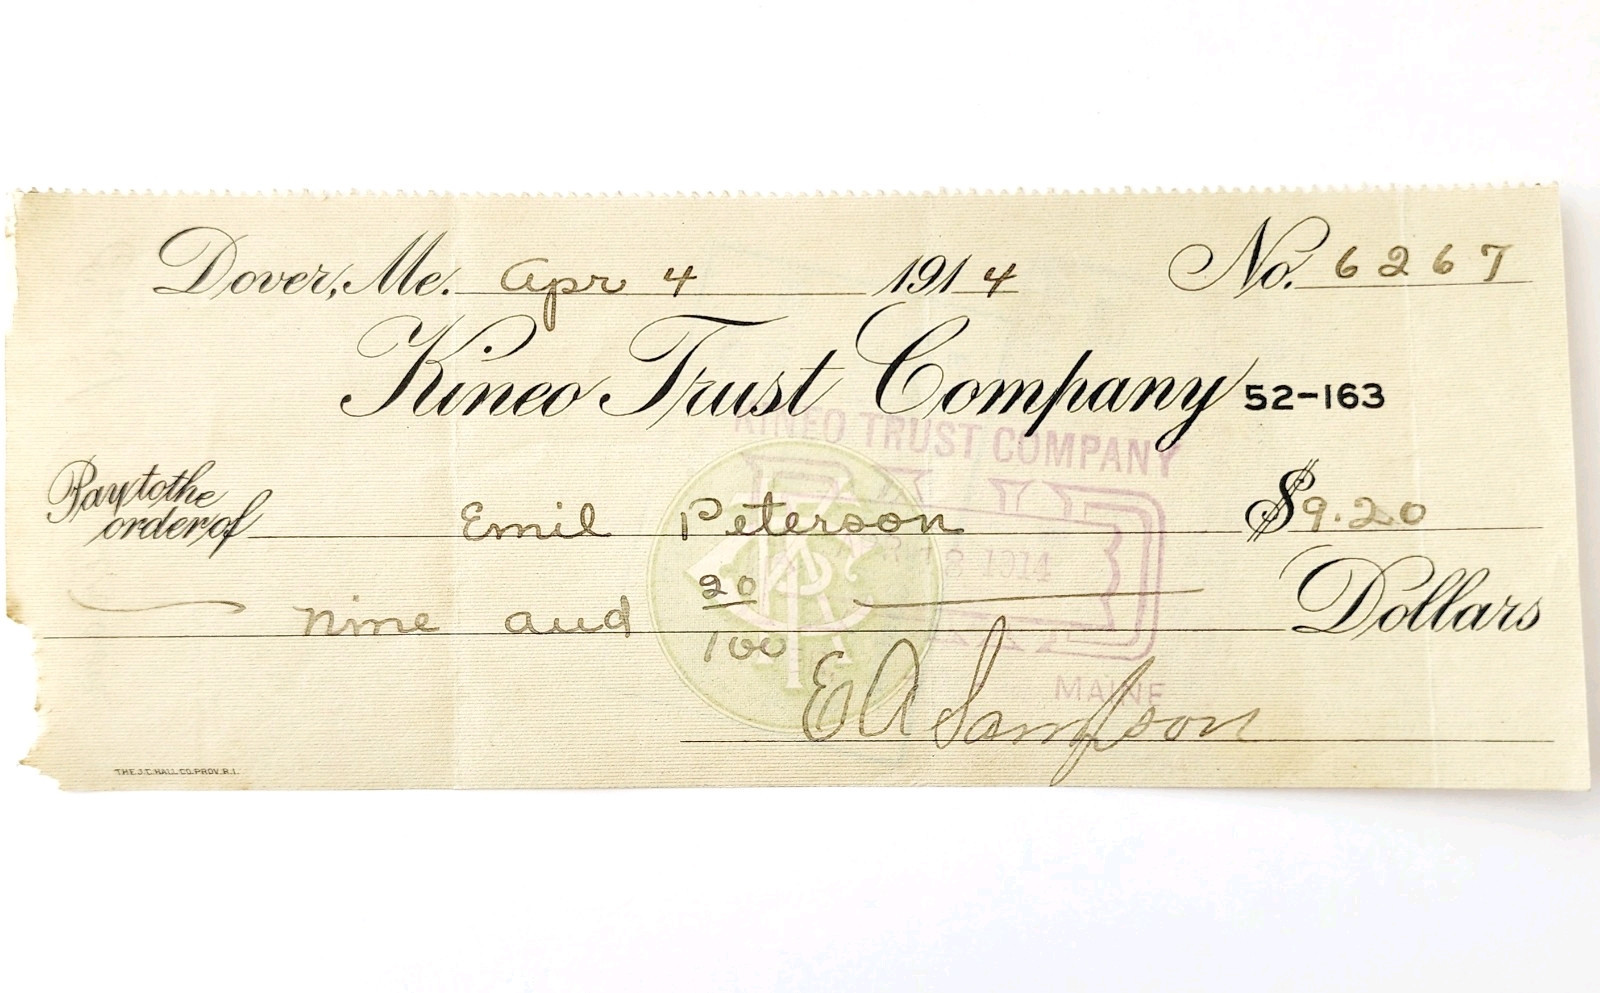 Dover, Me. Apr 4 1914 No. 6267
Kineo Trust Company 52-163
KINEO TRUST COMPANY
Pay to the
order of Emil Peterson $9.20
PAID
8 1914
nine and 20/100 Dollars
MAINE
E A Sampson
THE J.C. HALL CO. PROV. R.I.